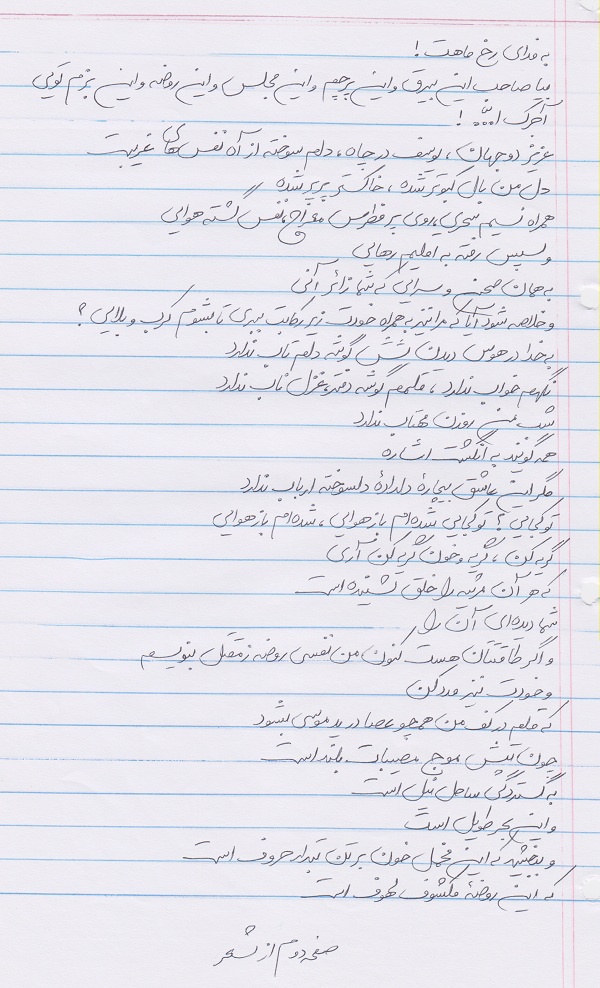 به فدای رخ ماهت !
بیا صاحب این بیرق و این پرچم و این مجلس و این روضه و این بزم تویی
آجرک الله !
عزیز دو جهان ، یوسف در چاه ، دلم سوخته از آه نفس های غریبت
دل من بال کبوتر شده ، خاکستر پرپر شده
همراه نسیم سحری روی پر فطرس معراج نفس گشته هوایی
و سپس رفته به اقلیم رهایی
به همان صحن و سرایی که شما زائر آنی
و خلاصه شود آیا که مرا نیز به همراه خودت زیر رکابت ببری تا بشوم کرب و بلایی ؟
به خدا در هوس دیدن شش گوشه دلم تاب ندارد
نگهم خواب ندارد ، قلمم گوشه دفتر غزل ناب ندارد
شب من روزن مهتاب ندارد
همه گویند به انگشت اشاره
مگر این عاشق بیچارهٔ دلدادهٔ دلسوخته ارباب ندارد
تو کجایی ؟ تو کجایی شده‌ام باز هوایی ، شده‌ام باز هوایی
گریه کن ، گریه و خون گریه کن آری
که هر آن مرثیه را خلق شنیده است
شما دیده‌ای آن را
و اگر طاقتتان هست کنون من نفسی روضه ز مقتل بنویسم
و خودت نیز مدد کن
که قلم در کف من همچو عصا در ید موسی بشود
چون تپش موج مصیبات بلند است
به گستردگی ساحل نیل است
و این بحر طویل است
و ببخشید که این مخمل خون بر تن تبدار حروف است
که این روضهٔ مکشوف لهوف است
صفحه دوم از شعر